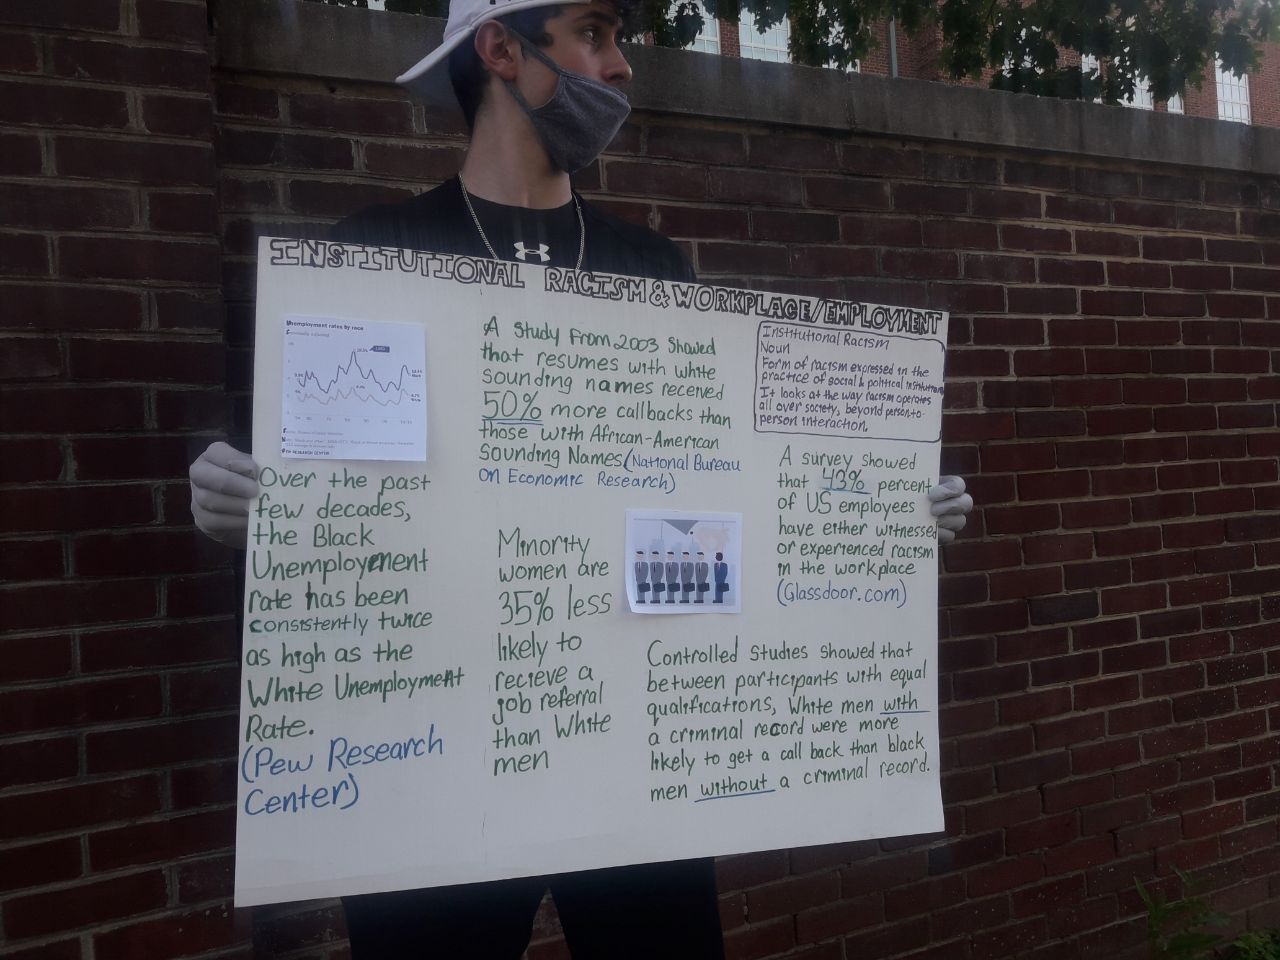 INSTITUTIONAL RACISM & WORKPLACE/EMPLOYMENT
Unemployment rates by race
Over the past
few decades,
the Black
Unemployment
rate has been
consistently twice
as high as the
White Unemployment
Rate.
(Pew Research
Center)
A study from 2003 showed
that resumes with white
sounding names received
50% more callbacks than
those with African-American
sounding Names (National Bureau
on Economic Research)
Minority
women are
35% less
likely to
recieve a
job referral
than White
men
Institutional Racism
Noun
Form of racism expressed in the
practice of social & political institutions
It looks at the way racism operates
all over society, beyond person-to-
person interaction.
A survey showed
that 43% percent
of US employees
have either witnessed
or experienced racism
in the workplace
(Glassdoor.com)
Controlled studies showed that
between participants with equal
qualifications, White men with
a criminal record were more
likely to get a call back than black
men without a criminal record.